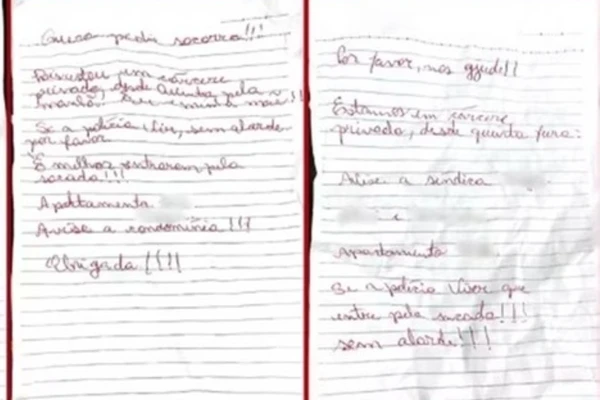 Quero pedir socorro!!!
em cárcere
privado, desde quinta pela
manhã. Eu e minha mãe!!
Se a polícia vier, sem alarde
por favor
É melhor entrarem pela
sacada!!!
Apartamento
Avise a condomínia!!!
Obrigada!!!!
Por favor, nos ajude!!
Estamos em cárcere
privado, desde quinta feira:
Avise a síndica
e
Apartamento
Se a polícia vier que
entre pela sacada!!!
sem alarde!!!